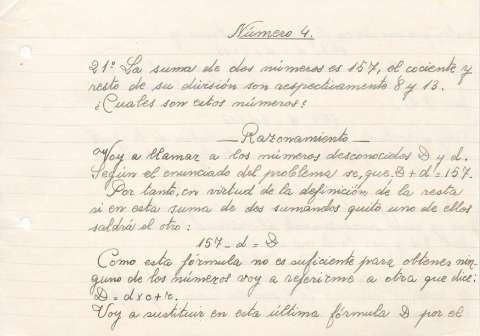 Número 4.
21º La suma de dos números es 157, el cociente y
resto de su división son respectivamente 8 y 13.
¿Cuales son estos números?
—Razonamiento—
Voy a llamar a los números desconocidos D y d.
Según el enunciado del problema se, que D + d = 157.
Por tanto, en virtud de la definición de la resta
si en esta suma de dos sumandos quito uno de ellos
saldrá el otro:
157 - d = D
Como esta fórmula no es suficiente para obtener nin-
guno de los números voy a referirme a otra que dice:
D = d x c + r.
Voy a sustituir en esta última fórmula D por el